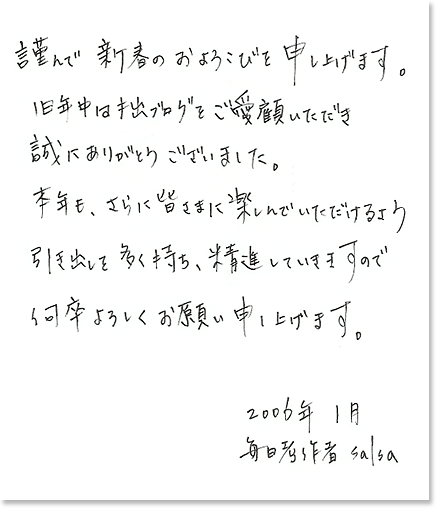 謹んで 新春の およろこびを 申し上げます。
旧年中は拙ブログをご愛顧いただき
誠にありがとうございました。
本年も、さらに皆さまに楽しんでいただけるよう
引き出しを多く持ち、精進していきますので
何卒よろしくお願い申し上げます。
2006年 1月
毎日 作者 salsa